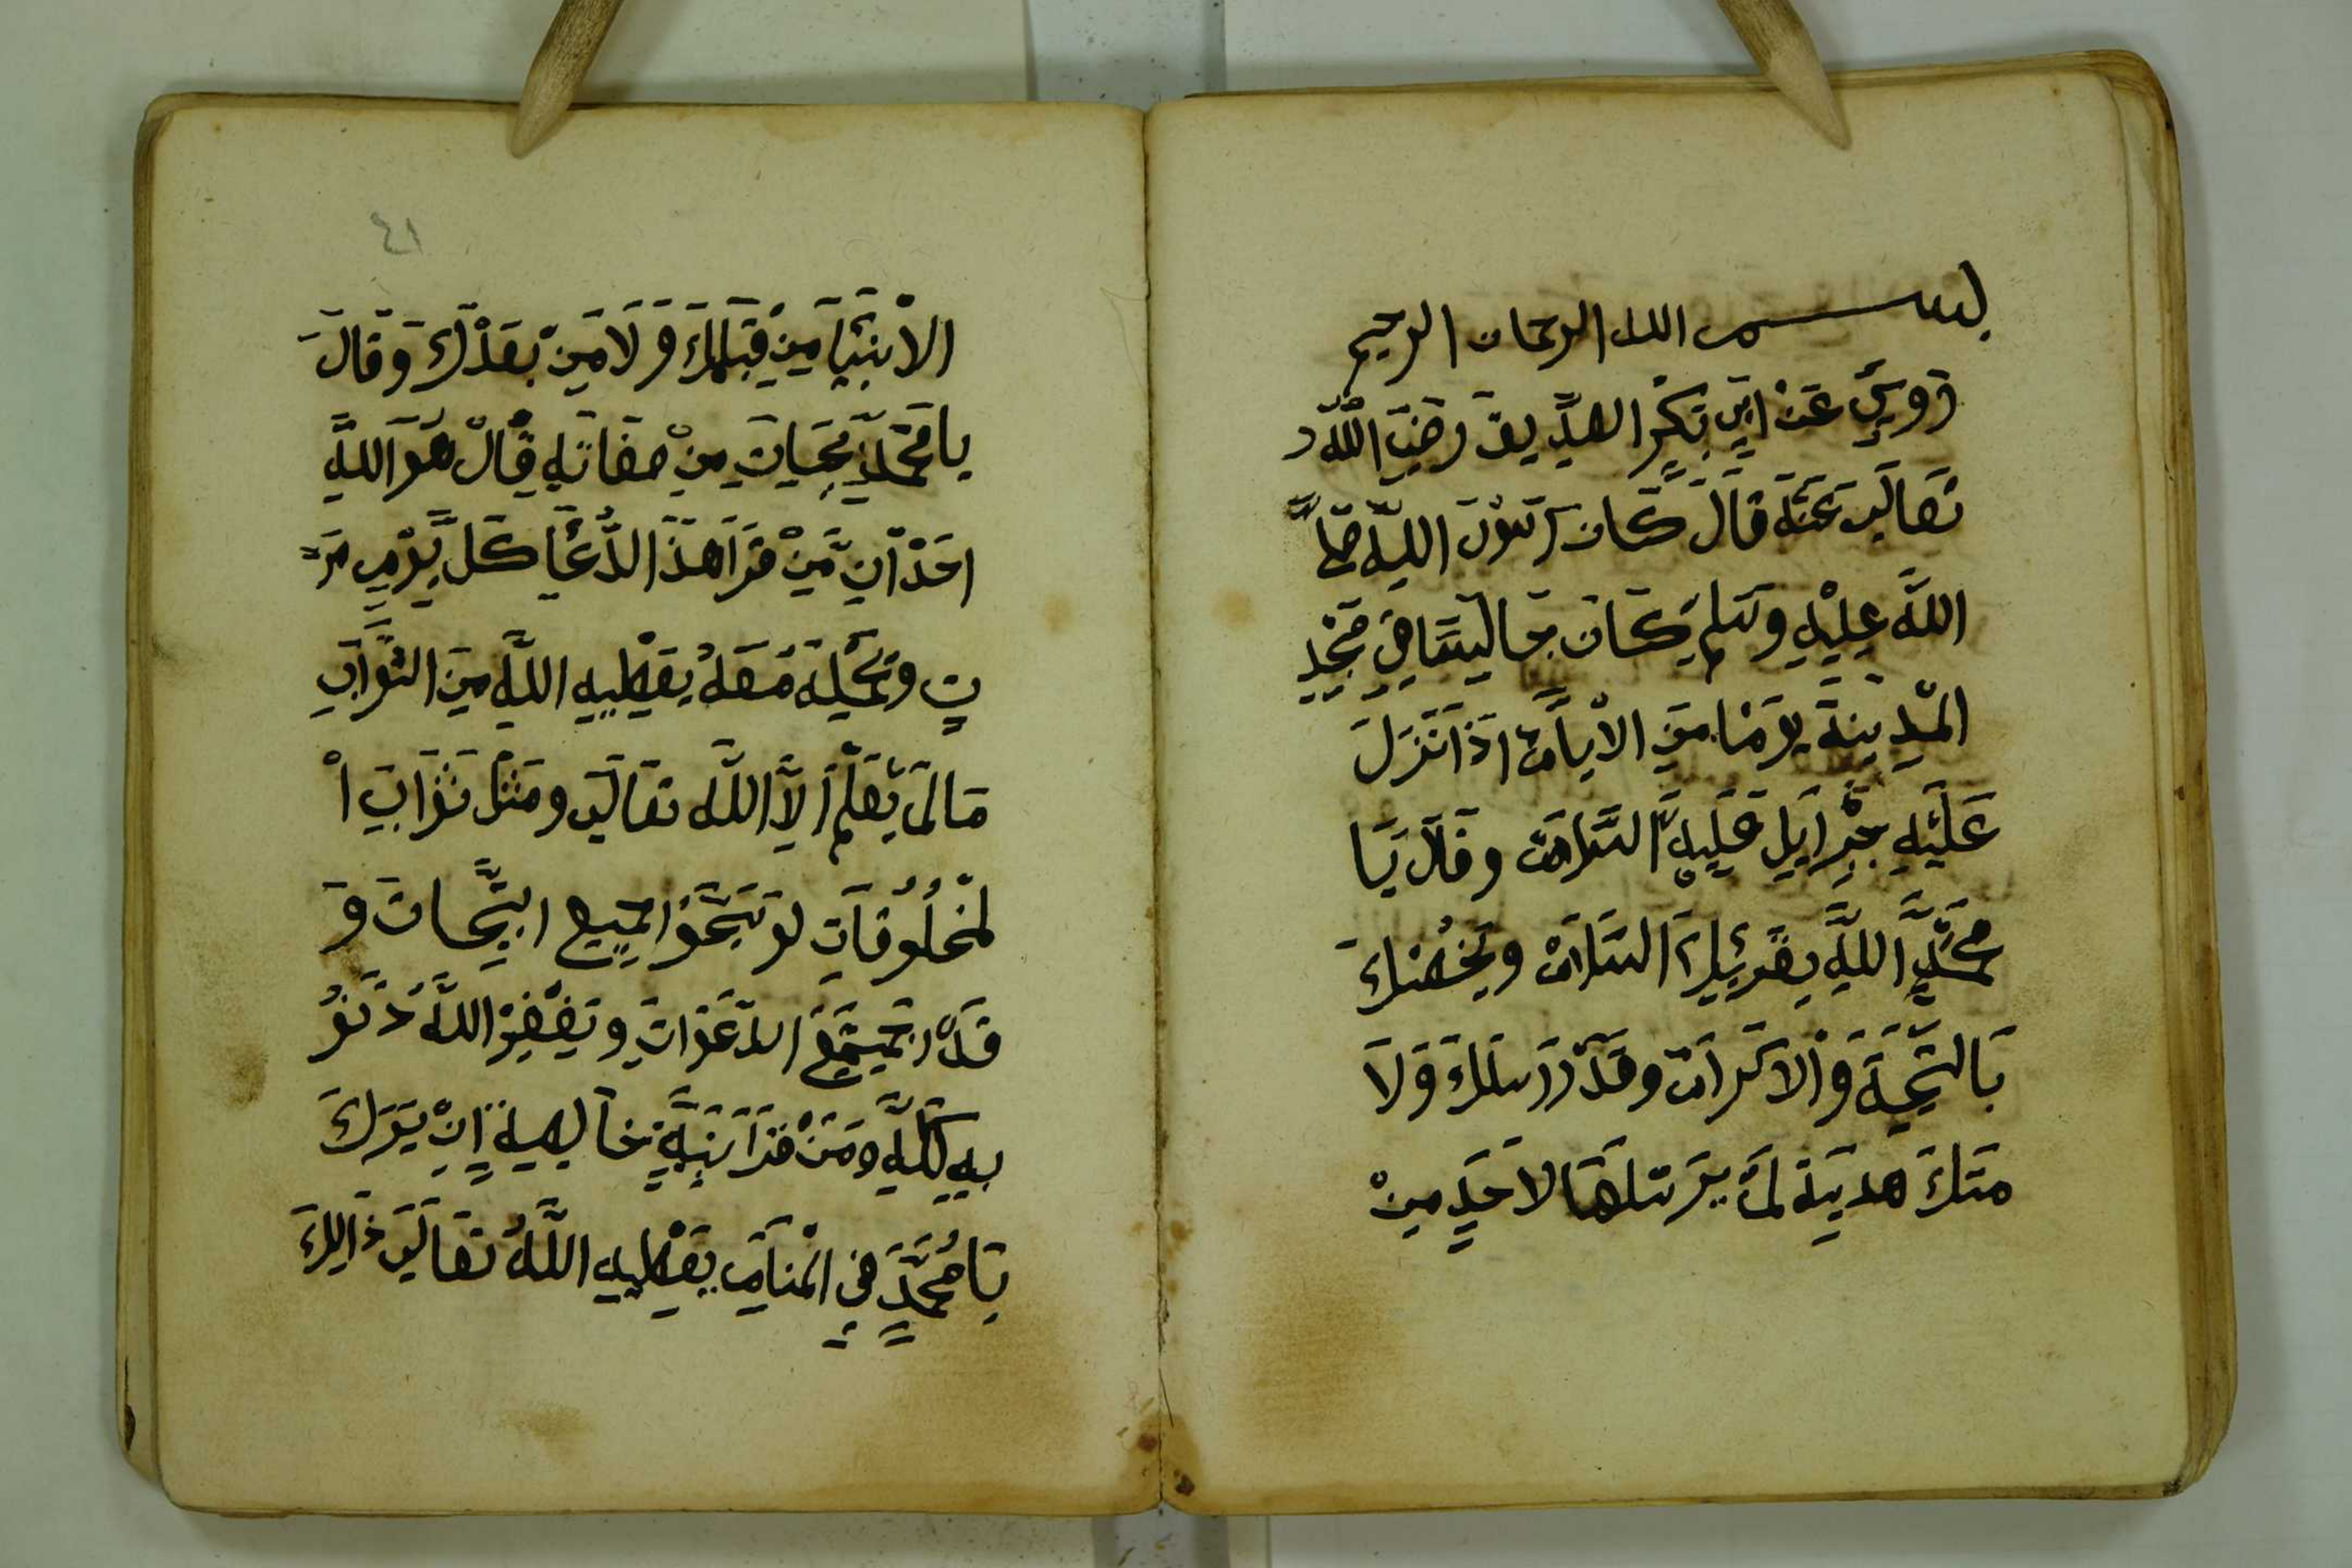 بسم الله الرحمان الرحيم
روي عن ابي بكر الصديق رضي الله
تعالى عنه قال كان رسول الله صلا
الله عليه وسلم كان جالسا في مجد
المدينة يوما من الايام اذا نزل
عليه جبرايل عليه السلام وقال يا
محمد الله يقرئك السلام ويخصك
بالتحية والاكرام وقد ارسلك ولا
متك هدية لم يرسلها لاحد من
٤١
الانبيا من قبلك ولا من بعدك وقال
يا محمد من صفاته قال هو الله
احد ان من قرا هذا الدعا كل يوم مر
ت وحمله معه يعطيه الله من الثواب
ما لم يعلم الا الله تعالى ومثل ثواب ا
لمخلوقات لو جميع و
قد الدعوات ويغفر الله ذنو
به كله ومن قرا بنية خالصة ان يرك
يا محمد في المنام يعطيه الله تعالى ذالك